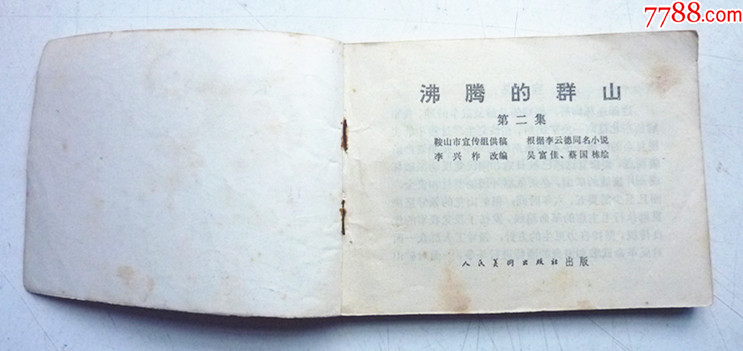 7788.com
沸腾的群山
第二集
鞍山市宣传组供稿 根据李云德同名小说
李兴柞改编 吴富佳、蔡国栋绘
人民美术出版社 出版